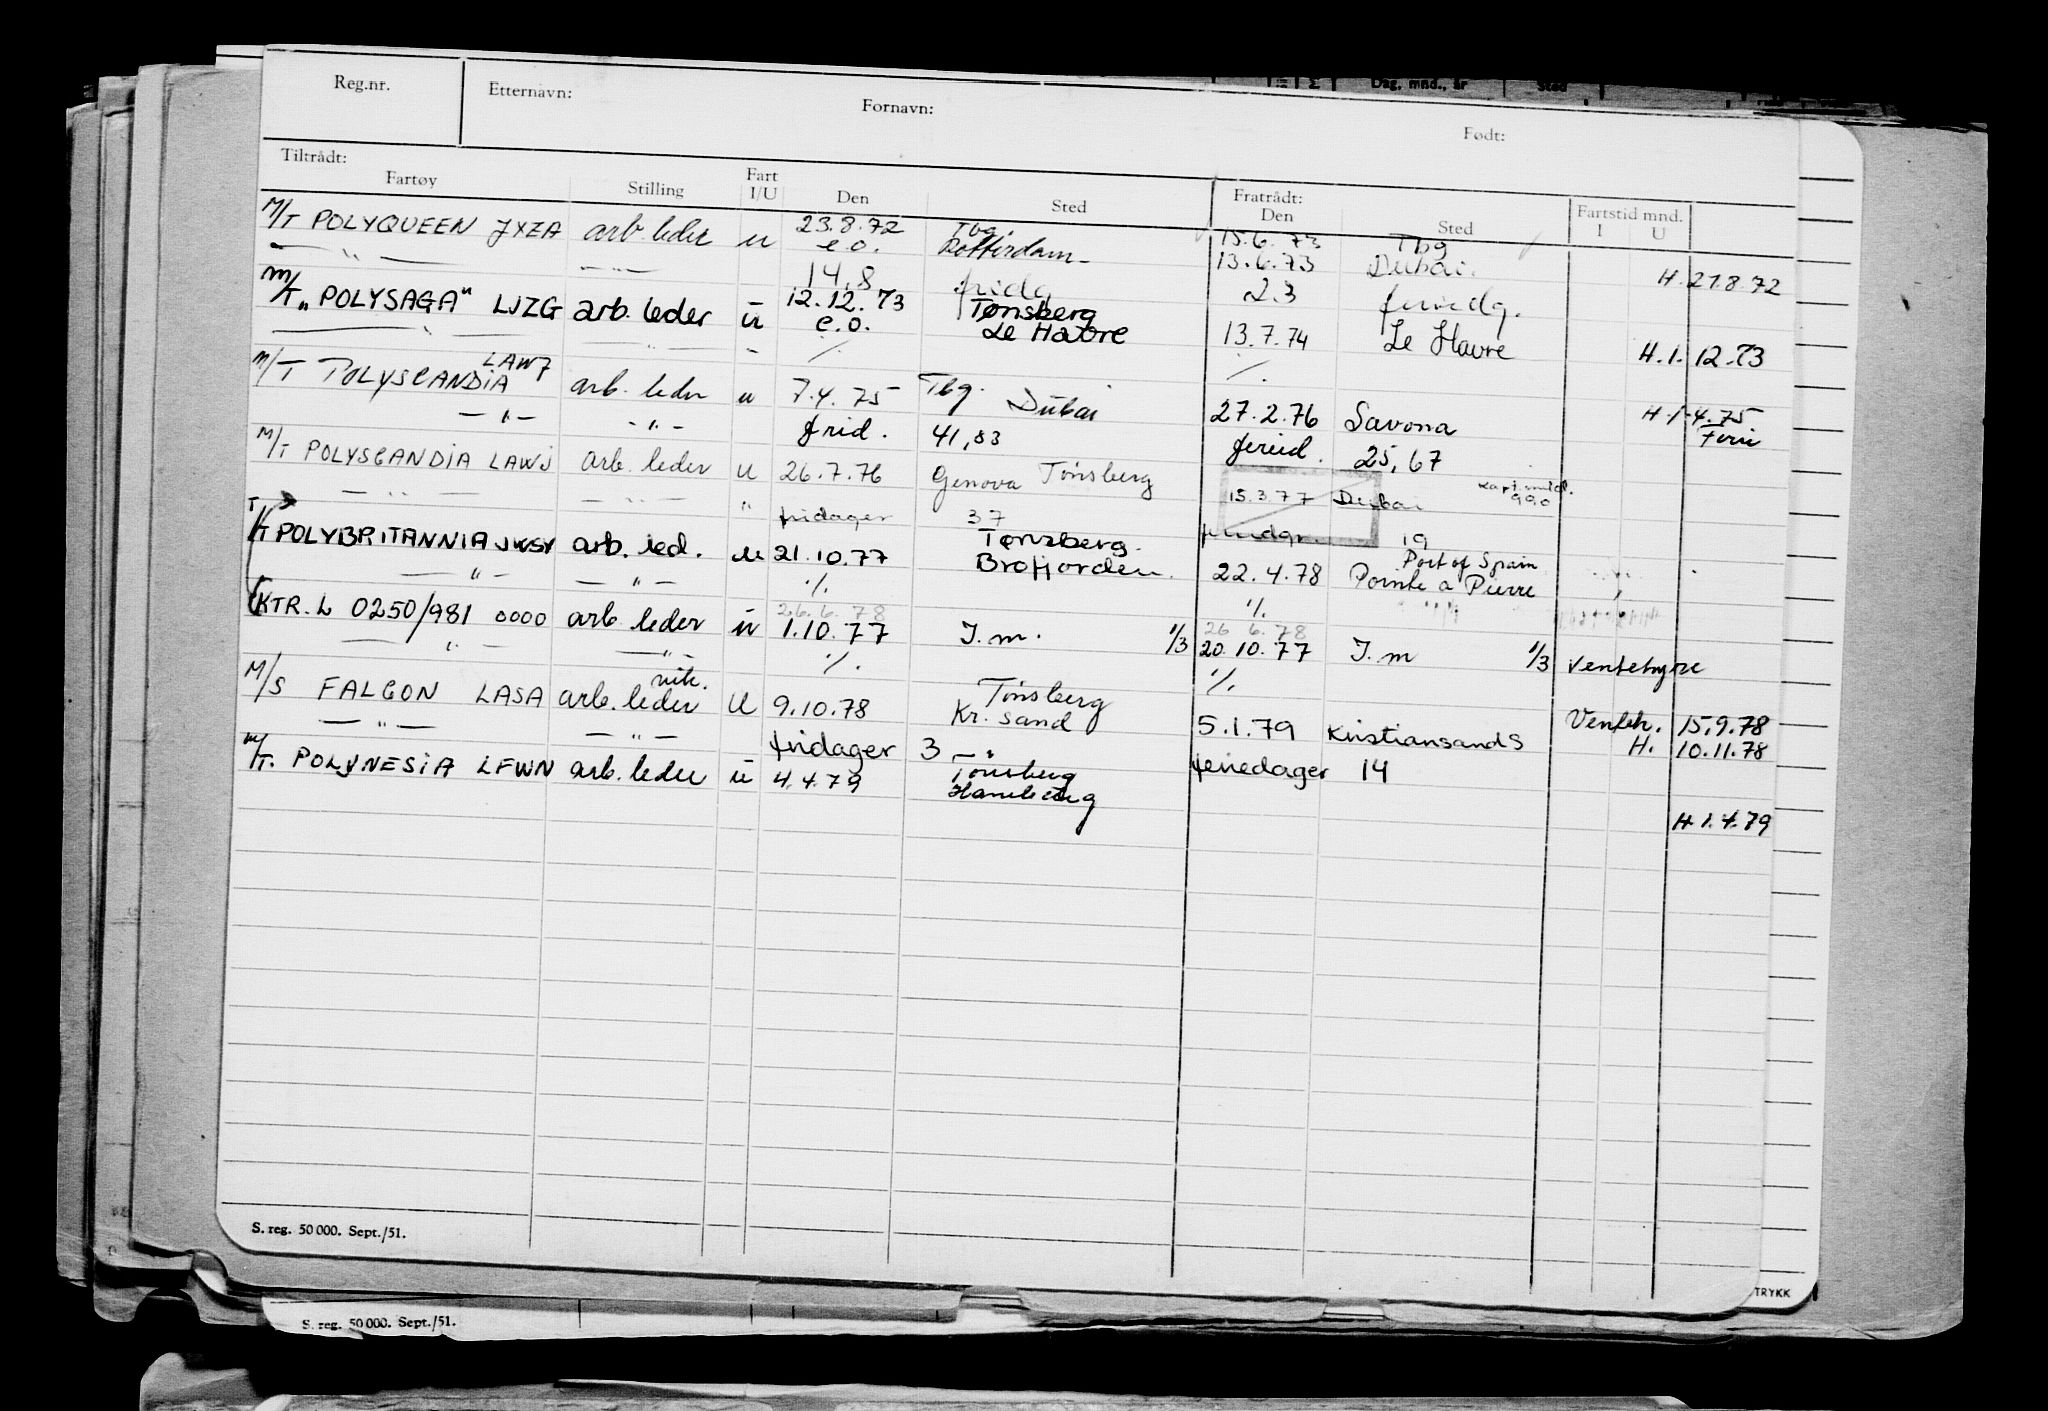 Dag, mnd., år Sted
Reg.nr. Etternavn: Fornavn: Født:
Tiltrådt: Fratrådt: Fartstid mnd.
Fartøy Stilling Fart I/U Den Sted Den Sted I U
M/T POLYQUEEN JXZA arb. leder u 23.8.72 Tbg. 15.6.73 Tbg
— " — — " — e.o. Rotterdam 13.6.73 Dubai. H. 27.8.72
14,8 fridg 2.3 feriedg.
M/T „POLYSAGA" LJZG arb. leder u 12.12.73 Tønsberg
— " — — " — e.o. Le Havre 13.7.74 Le Havre H. 1. 12.73
M/T POLYSCANDIA LAWJ arb. leder u 7.4.75 Tbg. Dubai
— " — — " — 27.2.76 Savona H. 1.4.75
frid. 41,83 feried. 25,67 Ferie
M/T POLYSCANDIA LAWJ arb. leder u 26.7.76 Genova Tønsberg
— " — — " — " 15.3.77 Dubai
fridager 37 19
T/T POLYBRITANNIA JWSV arb. led. u 21.10.77 Tønsberg. Port of Spain
— " — — " — ./. Brofjorden. 22.4.78 Pointe a Pierre
26.6.78 ./. 26 6.78
KTR. L 0250/981 0000 arb. leder u 1.10.77 I.m. 1/3 20.10.77 I.m 1/3 Ventehyre
— " — — " — ./. ./.
M/S FALCON LASA arb. leder vik. U 9.10.78 Tønsberg Venteh. 15.9.78
— " — — " — Kr. sand 5.1.79 Kristiansand S H. 10.11.78
fridager 3 — " feriedager 14
M/T. POLYNESIA LFWN arb. leder u 4.4.79 Tønsberg
Hamburg H. 1.4.79
S. reg. 50 000. Sept./51.
TRYKK
S. reg. 50 000. Sept./51.